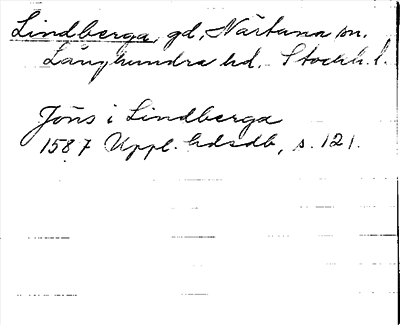 Lindberga, gd, Närtuna sn.
Långhundra hd. Stockh. l.
Jöns i Lindberga
1587 Uppl. hdsdb, s. 121.